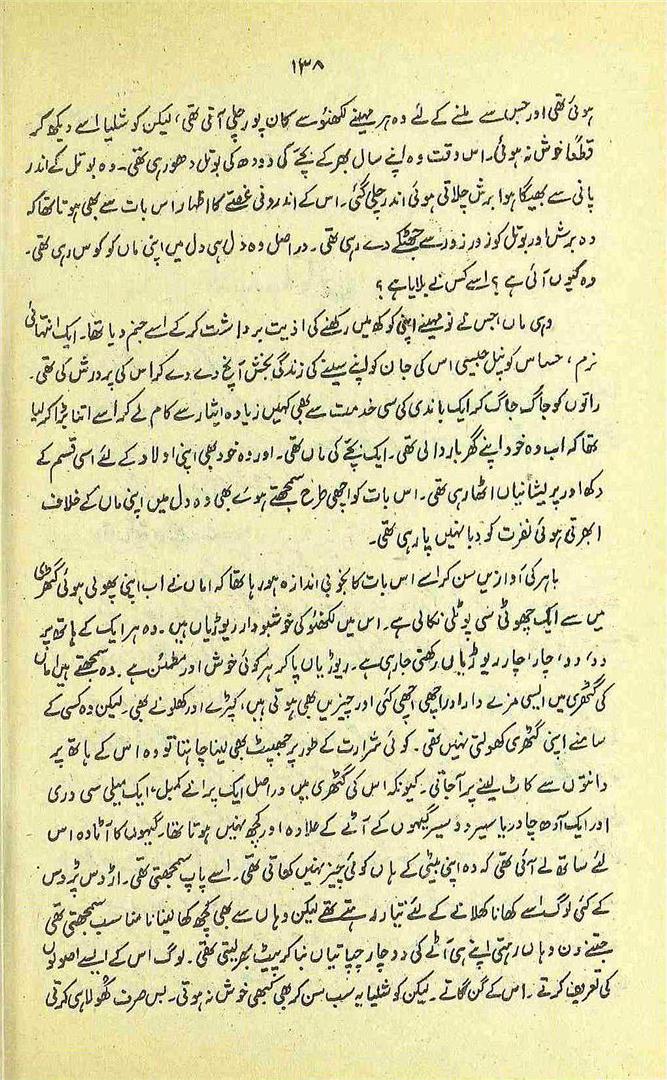 ۱۳۸
ہوئی تھی اور جس سے ملنے کے لئے وہ ہر مہینے لکھنؤ سے کان پور چلی آتی تھی، لیکن کوشلیا اسے دیکھ کر
قطعاً خوش نہ ہوئی۔ اس وقت وہ اپنے سال بھر کے بچے کی دودھ کی بوتل دھو رہی تھی۔ وہ بوتل کے اندر
پانی سے بھیگا ہوا برش چلاتی ہوئی اندر چلی گئی۔ اس کے اندرونی غصّے کا اظہار اس بات سے بھی ہوتا تھا کہ
وہ برش اور بوتل کو زور زور سے جھٹکے دے رہی تھی۔ دراصل وہ دل ہی دل میں اپنی ماں کو کوس رہی تھی۔
وہ کیوں آئی ہے؟ اسے کس نے بلایا ہے؟
وہی ماں! جس نے نو مہینے اپنی کوکھ میں رکھنے کی اذیت برداشت کر کے اسے جنم دیا تھا۔ ایک انتہائی
نرم، حساس کونپل جیسی اس کی جان کو اپنے سینے کی زندگی بخش آنچ دے دے کر اس کی پرورش کی تھی۔
راتوں کو جاگ جاگ کر ایک باندی کی سی خدمت سے بھی کہیں زیادہ ایثار سے کام لے کر اسے اتنا بڑا کر لیا
تھا کہ اب وہ خود اپنے گھر بار والی تھی۔ ایک بچّے کی ماں تھی۔ اور وہ خود بھی اپنی اولاد کے لئے اسی قسم کے
دکھ اور پریشانیاں اٹھا رہی تھی۔ اس بات کو اچھی طرح سمجھتے ہوئے بھی وہ دل میں اپنی ماں کے خلاف
ابھرتی ہوئی نفرت کو دبا نہیں پا رہی تھی۔
باہر کی آوازیں سن کر اسے اس بات کا بخوبی اندازہ ہو رہا تھا کہ اماں نے اب اپنی پھولی ہوئی گٹھری
میں سے ایک چھوٹی سی پوٹلی نکالی ہے۔ اس میں لکھنؤ کی خوشبودار ریوڑیاں ہیں۔ وہ ہر ایک کے ہاتھ پر
دو، دو، چار، چار ریوڑیاں رکھتی جا رہی ہے۔ ریوڑیاں پا کر ہر کوئی خوش اور مطمئن ہے۔ وہ سمجھتے ہیں اماں
کی گٹھری میں ایسی مزے دار اور اچھی اچھی کئی اور چیزیں بھی ہوتی ہیں، کپڑے اور کھلونے بھی۔ لیکن وہ کسی کے
سامنے اپنی گٹھری کھولتی نہیں تھی۔ کوئی شرارت کے طور پر جھپٹ بھی لینا چاہتا تو وہ اس کے ہاتھ پر
دانتوں سے کاٹ لینے پر آ جاتی۔ کیونکہ اس کی گٹھری میں دراصل ایک پرانے کمبل، ایک میلی سی دری
اور ایک آدھ چادر یا سیر دو سیر گیہوں کے آٹے کے علاوہ اور کچھ نہیں ہوتا تھا۔ گیہوں کا آٹا وہ اس
لئے ساتھ لے آئی تھی کہ وہ اپنی بیٹی کے ہاں کوئی چیز نہیں کھاتی تھی۔ اسے پاپ سمجھتی تھی۔ اڑوس پڑوس
کے کئی لوگ اسے کھانا کھلانے کے لئے تیار رہتے تھے لیکن وہاں سے بھی کچھ کھا لینا نا مناسب سمجھتی تھی
جتنے دن وہاں رہتی اپنے ہی آٹے کی دو چار چپاتیاں بنا کر پیٹ بھر لیتی تھی۔ لوگ اس کے ایسے اصولوں
کی تعریف کرتے۔ اس کے گن گاتے۔ لیکن کوشلیا یہ سب سن کر بھی کبھی خوش نہ ہوتی۔ بس صرف کھولا ہی کرتی